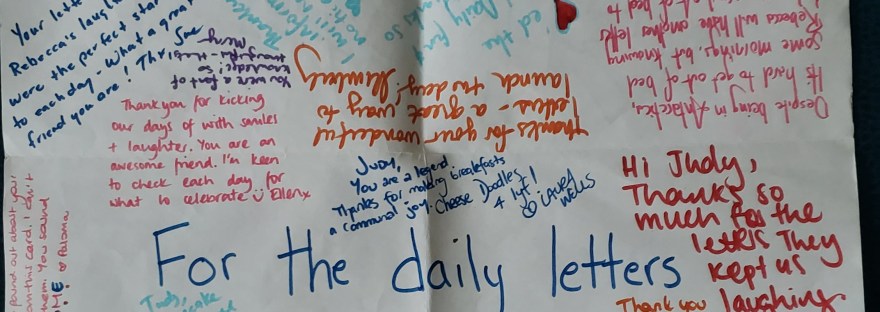 Your lette
Rebecca's laug
were the perfect star
to each day - What a grea
friend you are! Thx, Sue
You were a font of
knowledge! So
thoughtful - thanks
Mercy
Thank you for kicking
our days of with smiles
+ laughter. You are an
awesome friend. I'm keen
to check each day for
what to celebrate Ü Ellen x
Thanks for your wonderful
letters - a great way to
launch the day! Kimberly
Judy,
You are a legend
Thanks for making breakfasts
a communal joy. Cheese Doodles
4 lyf!
Laura
Wells
Despite being in Antarctica,
it's hard to get out of bed
some mornings, but knowing
Rebecca will have another letter
Hi Judy,
Thanks so
much for the
letters They
kept us
laughing
For the daily letters
found out about your
on this card. I can't
them. You sound
ME! Paloma
Thank you